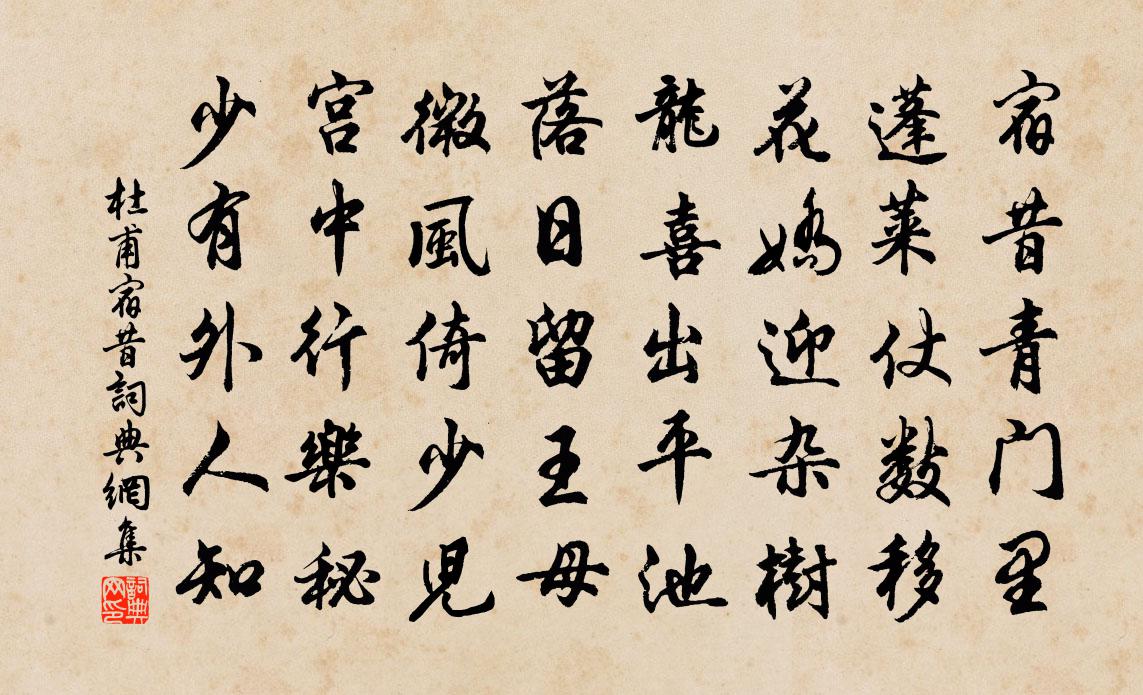 宿昔青门里
蓬莱仗數移
花嬌迎杂樹
龍喜出平池
落日留王母
微風倚少児
宮中行樂秘
少有外人知
杜甫宿昔詞典網集
詞典网印